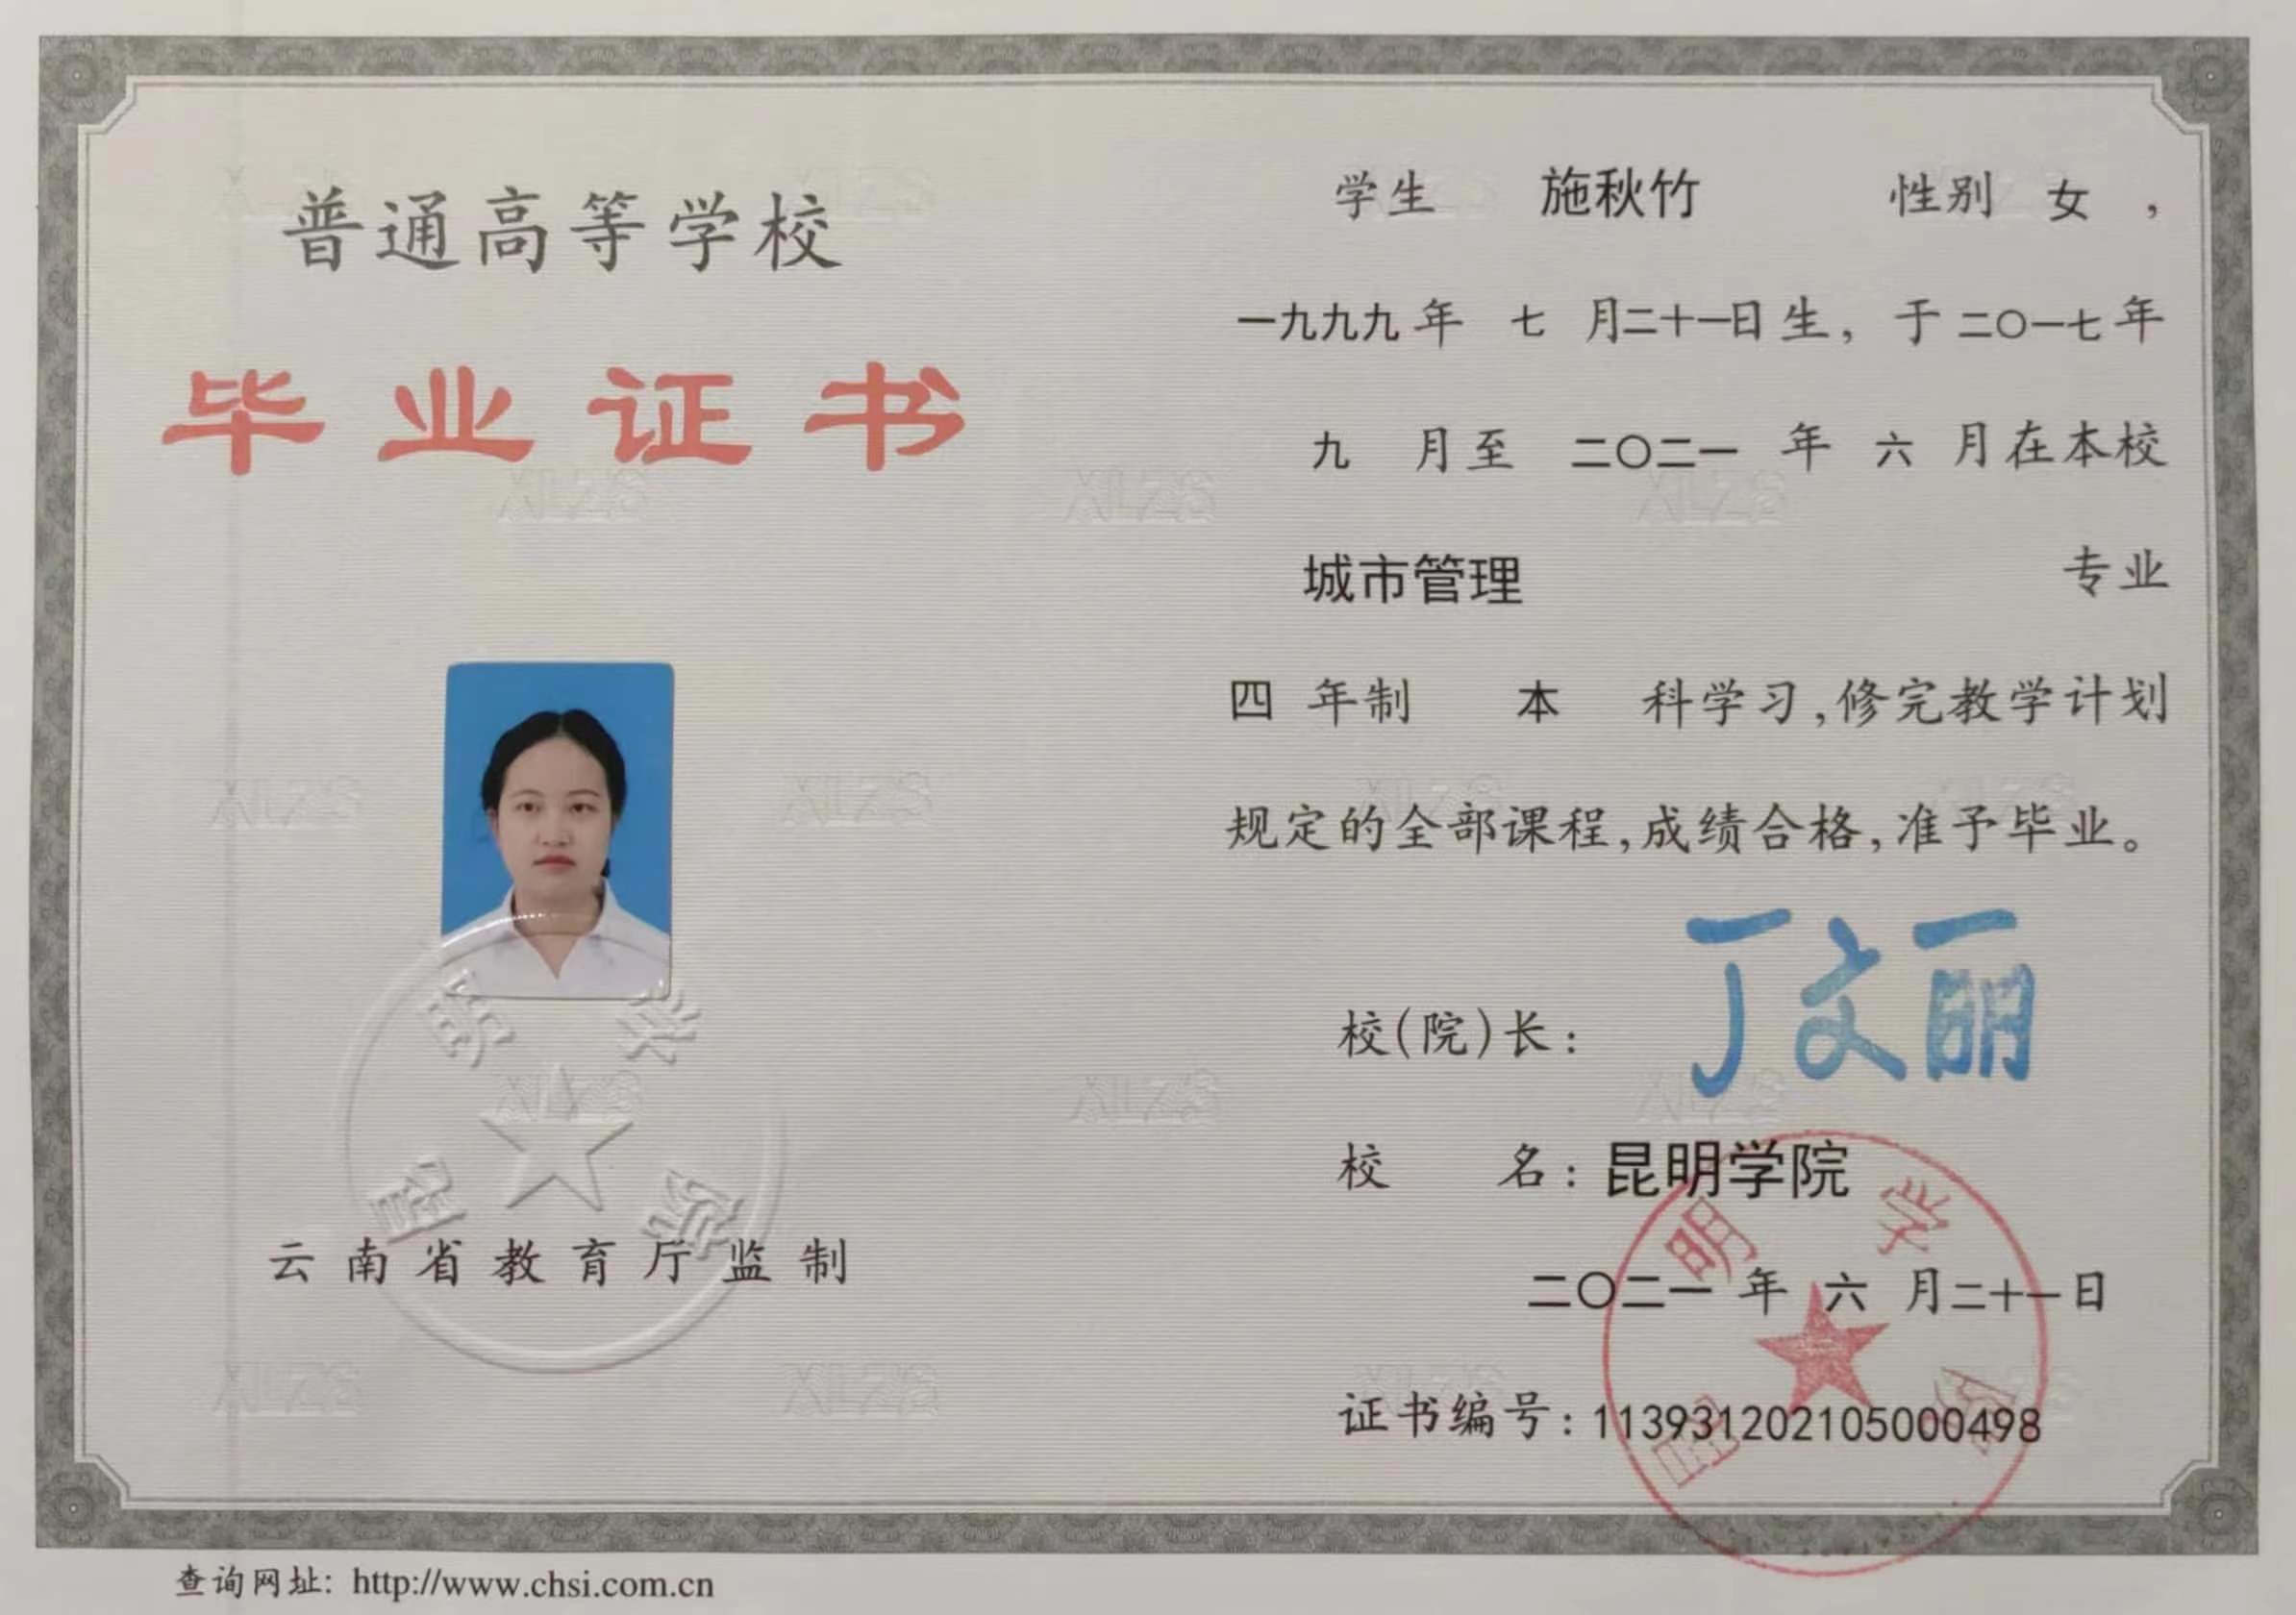 普通高等学校
毕业证书
云南省教育厅监制
学生 施秋竹 性别 女 ，
一九九九年 七 月二十一日生，于二〇一七年
九 月至 二〇二一 年 六 月在本校
城市管理 专业
四 年制 本 科学习，修完教学计划
规定的全部课程，成绩合格，准予毕业。
校（院）长： 丁文丽
校 名：昆明学院
二〇二一 年 六 月二十一日
证书编号：113931202105000498
昆明学院
昆明学院
XLZS
查询网址：http://www.chsi.com.cn